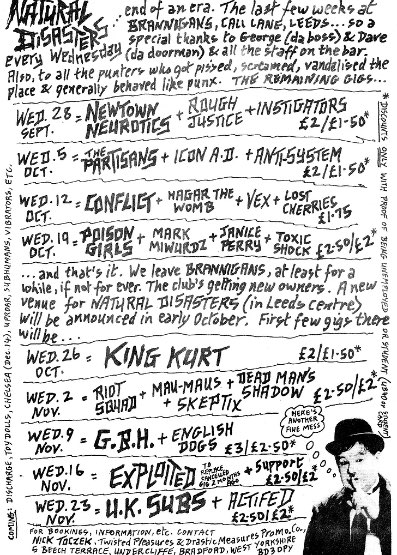 NATURAL DISASTERS
every Wednesday
...end of an era. The last few weeks at
BRANNIGANS, CALL LANE, LEEDS...so a
special thanks to George (da boss) & Dave
(da doorman) & all the staff on the bar.
Also, to all the punters who got pissed, screamed, vandalised the
place & generally behaved like punx. THE REMAINING GIGS...
WED. 28 SEPT. = NEWTOWN NEUROTICS + ROUGH JUSTICE + INSTIGATORS £2/£1·50*
WED. 5 OCT. = THE PARTISANS + ICON A.D. + ANTI-SYSTEM £2/£1·50*
WED. 12 OCT. = CONFLICT + HAGAR THE WOMB + VEX + LOST CHERRIES £1·75
WED. 19 OCT. = POISON GIRLS + MARK MIWURDZ + JANICE PERRY + TOXIC SHOCK £2·50/£2*
...and that's it. We leave BRANNIGANS, at least for a
while, if not for ever. The club's getting new owners. A new
venue for NATURAL DISASTERS (in Leeds Centre)
will be announced in early October. First few gigs there
will be...
WED. 26 OCT. = KING KURT £2/£1·50*
WED. 2 NOV. = RIOT SQUAD + MAU-MAUS + SKEPTIX + DEAD MAN'S SHADOW £2·50/£2*
WED. 9 NOV. = G.B.H. + ENGLISH DOGS £3/£2·50*
HERE'S ANOTHER FINE MESS
WED. 16 NOV. = EXPLOITED TO REPLACE CANCELLED GIG 2 MONTHS AGO + Support £2·50/£2*
WED. 23 NOV. = U.K. SUBS + ACTIFED £2·50/£2*
FOR BOOKINGS, INFORMATION, etc. CONTACT
NICK TOCZEK, Twisted Pleasures & Drastic Measures Promo. Co.,
5 BEECH TERRACE, UNDERCLIFFE, BRADFORD, WEST YORKSHIRE
BD3 0PY
COMING: DISCHARGE, TOY DOLLS, CHELSEA (Dec. 14), UPROAR, SUBHUMANS, VIBRATORS, ETC.
* DISCOUNTS ONLY WITH PROOF OF BEING UNEMPLOYED OR STUDENT